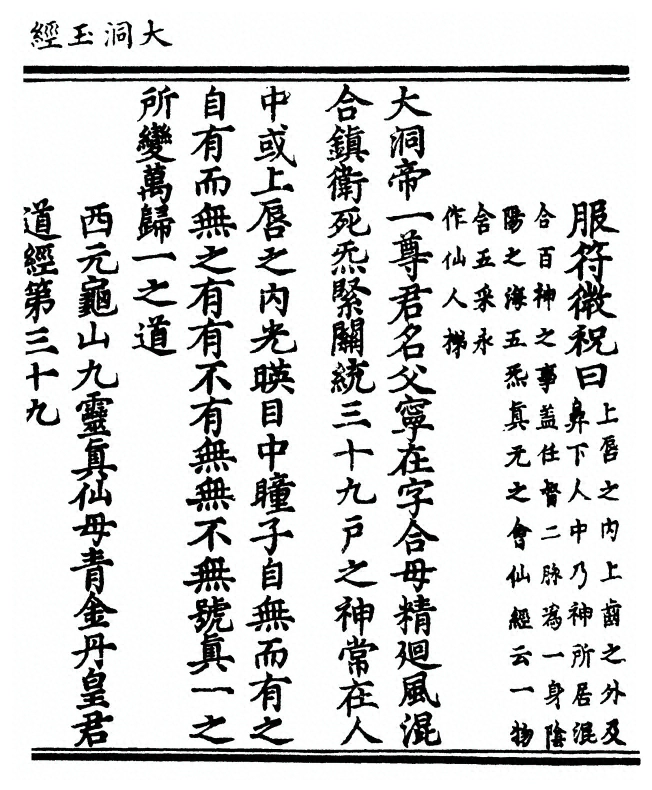 大洞玉經
服符微祝曰
上唇之内上齒之外及
鼻下人中乃神所居混
合百神之事蓋任督二脉為一身陰
陽之海五炁真元之會仙經云一物
含五采永
作仙人梯
大洞帝一尊君名父寧在字合母精廻風混
合鎮衛死炁緊關統三十九戶之神常在人
中或上唇之内光暎目中瞳子自無而有之
自有而無之有有不有無無不無號真一之
所變萬歸一之道
西元龜山九靈真仙母青金丹皇君
道經第三十九